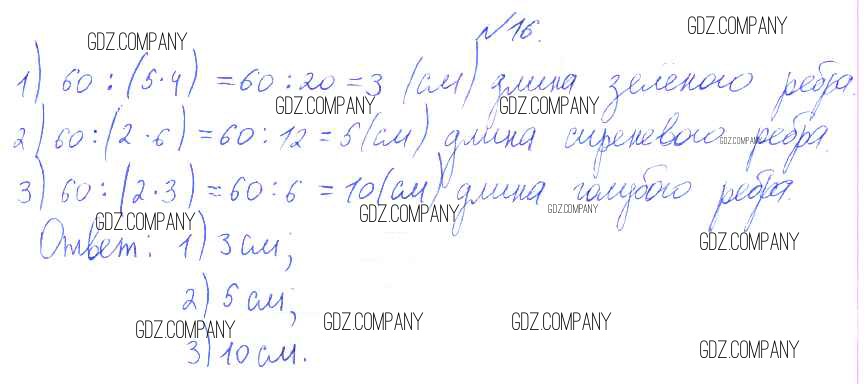 №16.
GDZ.COMPANY GDZ.COMPANY
1) 60 : (5·4) = 60 : 20 = 3 (см) длина зелёного ребра.
GDZ.COMPANY GDZ.COMPANY
2) 60 : (2·6) = 60 : 12 = 5 (см) длина сиреневого ребра.
GDZ.COMPANY
3) 60 : (2·3) = 60 : 6 = 10 (см) длина голубого ребра.
GDZ.COMPANY GDZ.COMPANY GDZ.COMPANY
Ответ: 1) 3 см;
GDZ.COMPANY
2) 5 см;
GDZ.COMPANY GDZ.COMPANY GDZ.COMPANY
3) 10 см.
GDZ.COMPANY